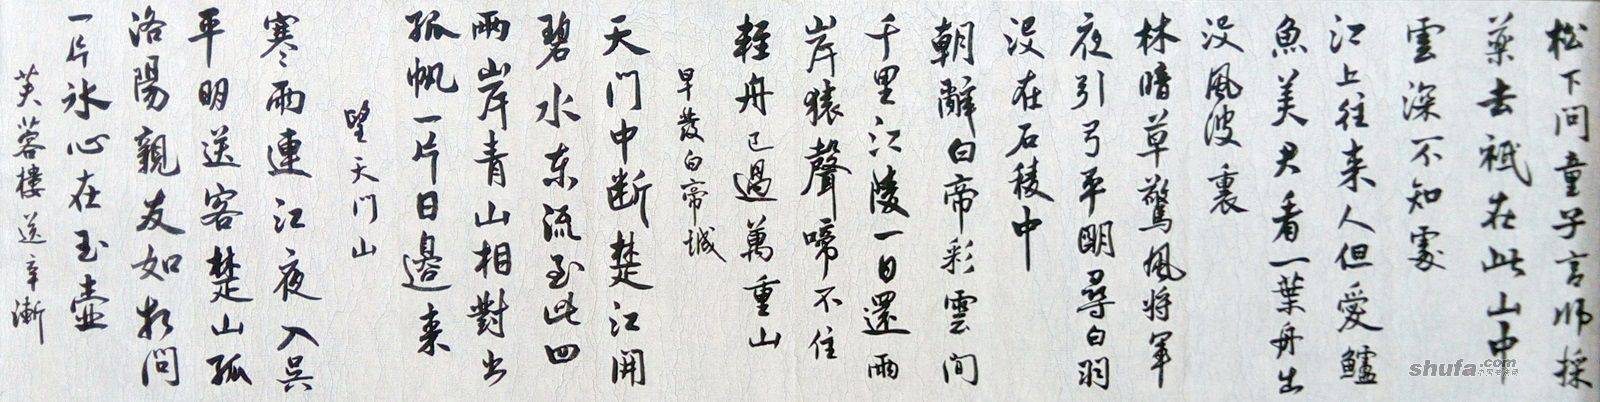 松下問童子言師採
藥去祇在此山中
雲深不知處
江上往来人但愛鱸
魚美君看一葉舟出
没風波裏
林暗草驚風将軍
夜引弓平明尋白羽
没在石稜中
朝辭白帝彩雲間
千里江陵一日還兩
岸猿聲啼不住
輕舟已過萬重山
早發白帝城
天门中断楚江開
碧水东流至此回
兩岸青山相對出
孤帆一片日邊来
望天门山
寒雨連江夜入吳
平明送客楚山孤
洛陽親友如相問
一片冰心在玉壺
芙蓉樓送辛漸
shufa.com